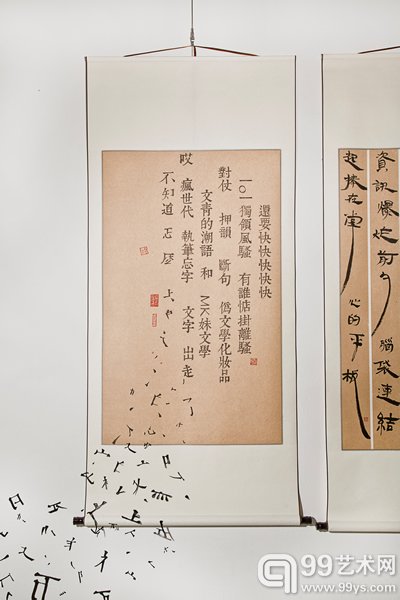 資訊爆炸前夕 腦袋連結
起捧在掌 心的平板
還要快快快快快快
一〇一獨領風騷 有誰惦掛離騷
對仗 押韻 斷句 僞文學化妝品
文青的潮語 和 MK妹文學
哎 瘋世代 執筆忘字 文字 出走
不知道
99艺术网
www.99ys.com